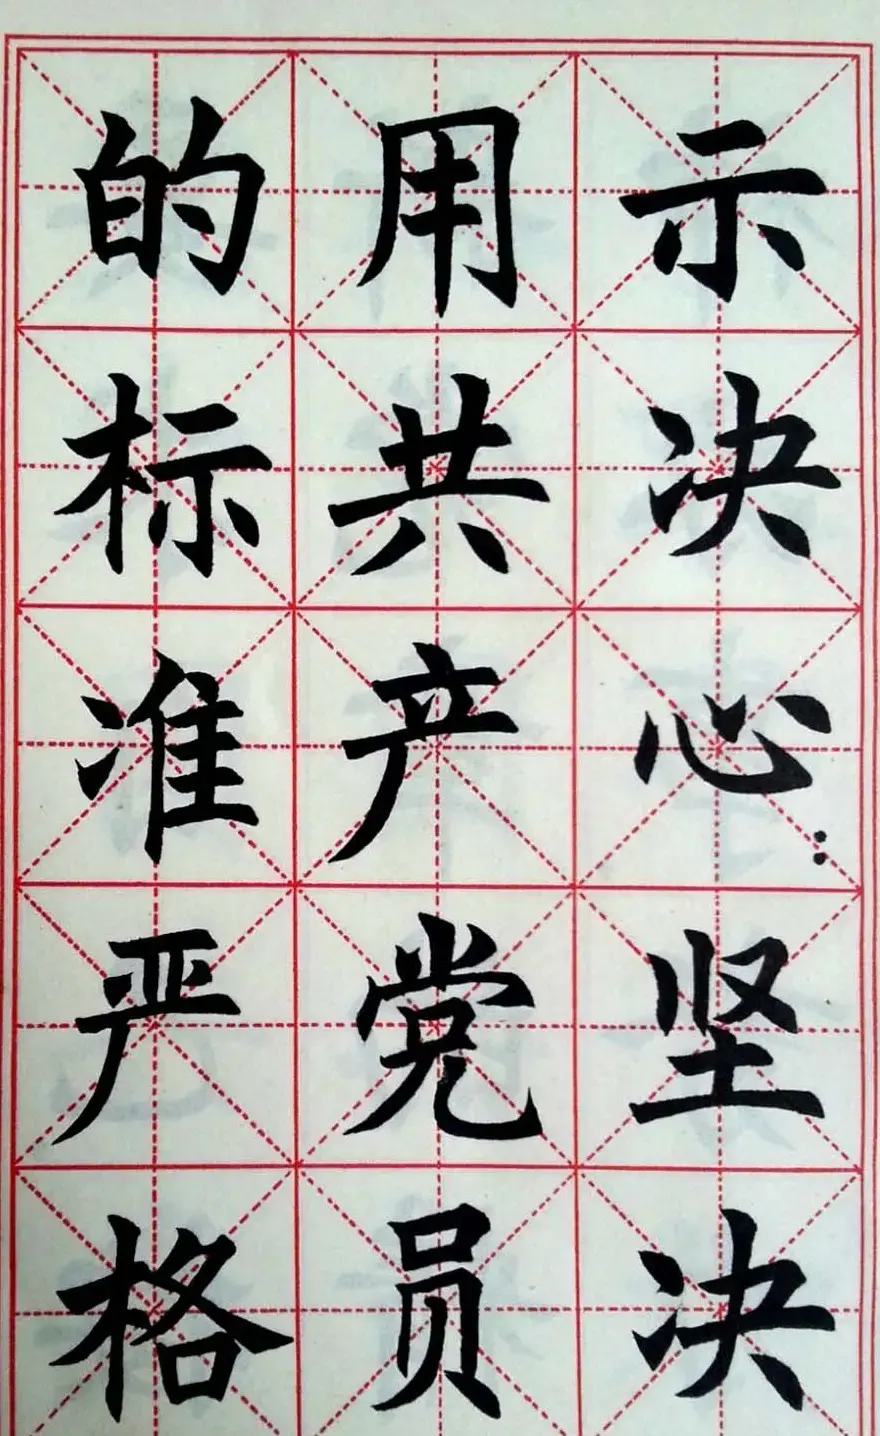 示决心：坚决
用共产党员
的标准严格